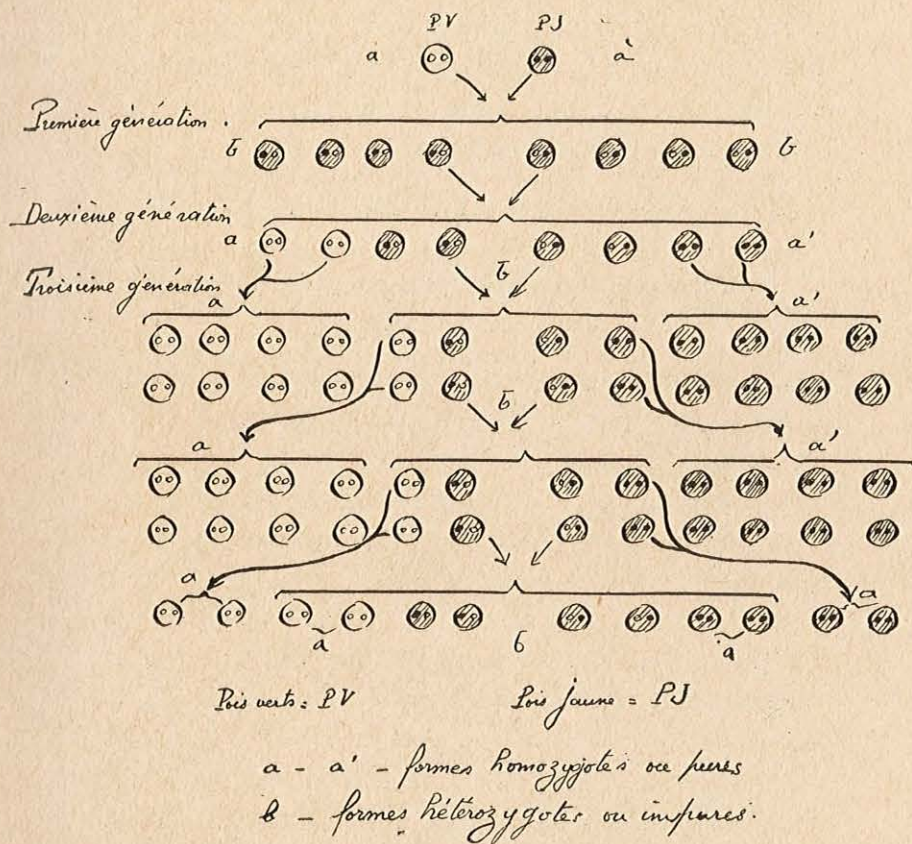 PV PJ
a à
Première génération.
b b
Deuxième génération
a a'
b
Troisième génération
a a'
b
a a'
a a
a b a
Pois verts = PV Pois jaune = PJ
a - a' - formes homozygotes ou pures
b - formes hétérozygotes ou impures.